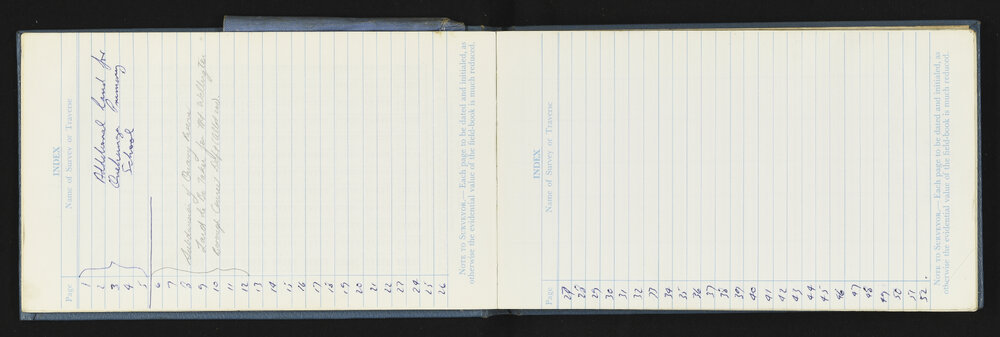 INDEX
Page Name of Survey or Traverse
1
2 Additional Land for
3 Onehunga Primary
4 School
5
6
7
8 Subdivision of
9 Land to be Taken for Mt Wellington
10
11
12
13
14
15
16
17
18
19
20
21
22
23
24
25
26
NOTE TO SURVEYOR.—Each page to be dated and initialed, as
otherwise the evidential value of the field-book is much reduced.
INDEX
Page Name of Survey or Traverse
27
28
29
30
31
32
33
34
35
36
37
38
39
40
41
42
43
44
45
46
47
48
49
50
51
52
NOTE TO SURVEYOR.—Each page to be dated and initialed, as
otherwise the evidential value of the field-book is much reduced.